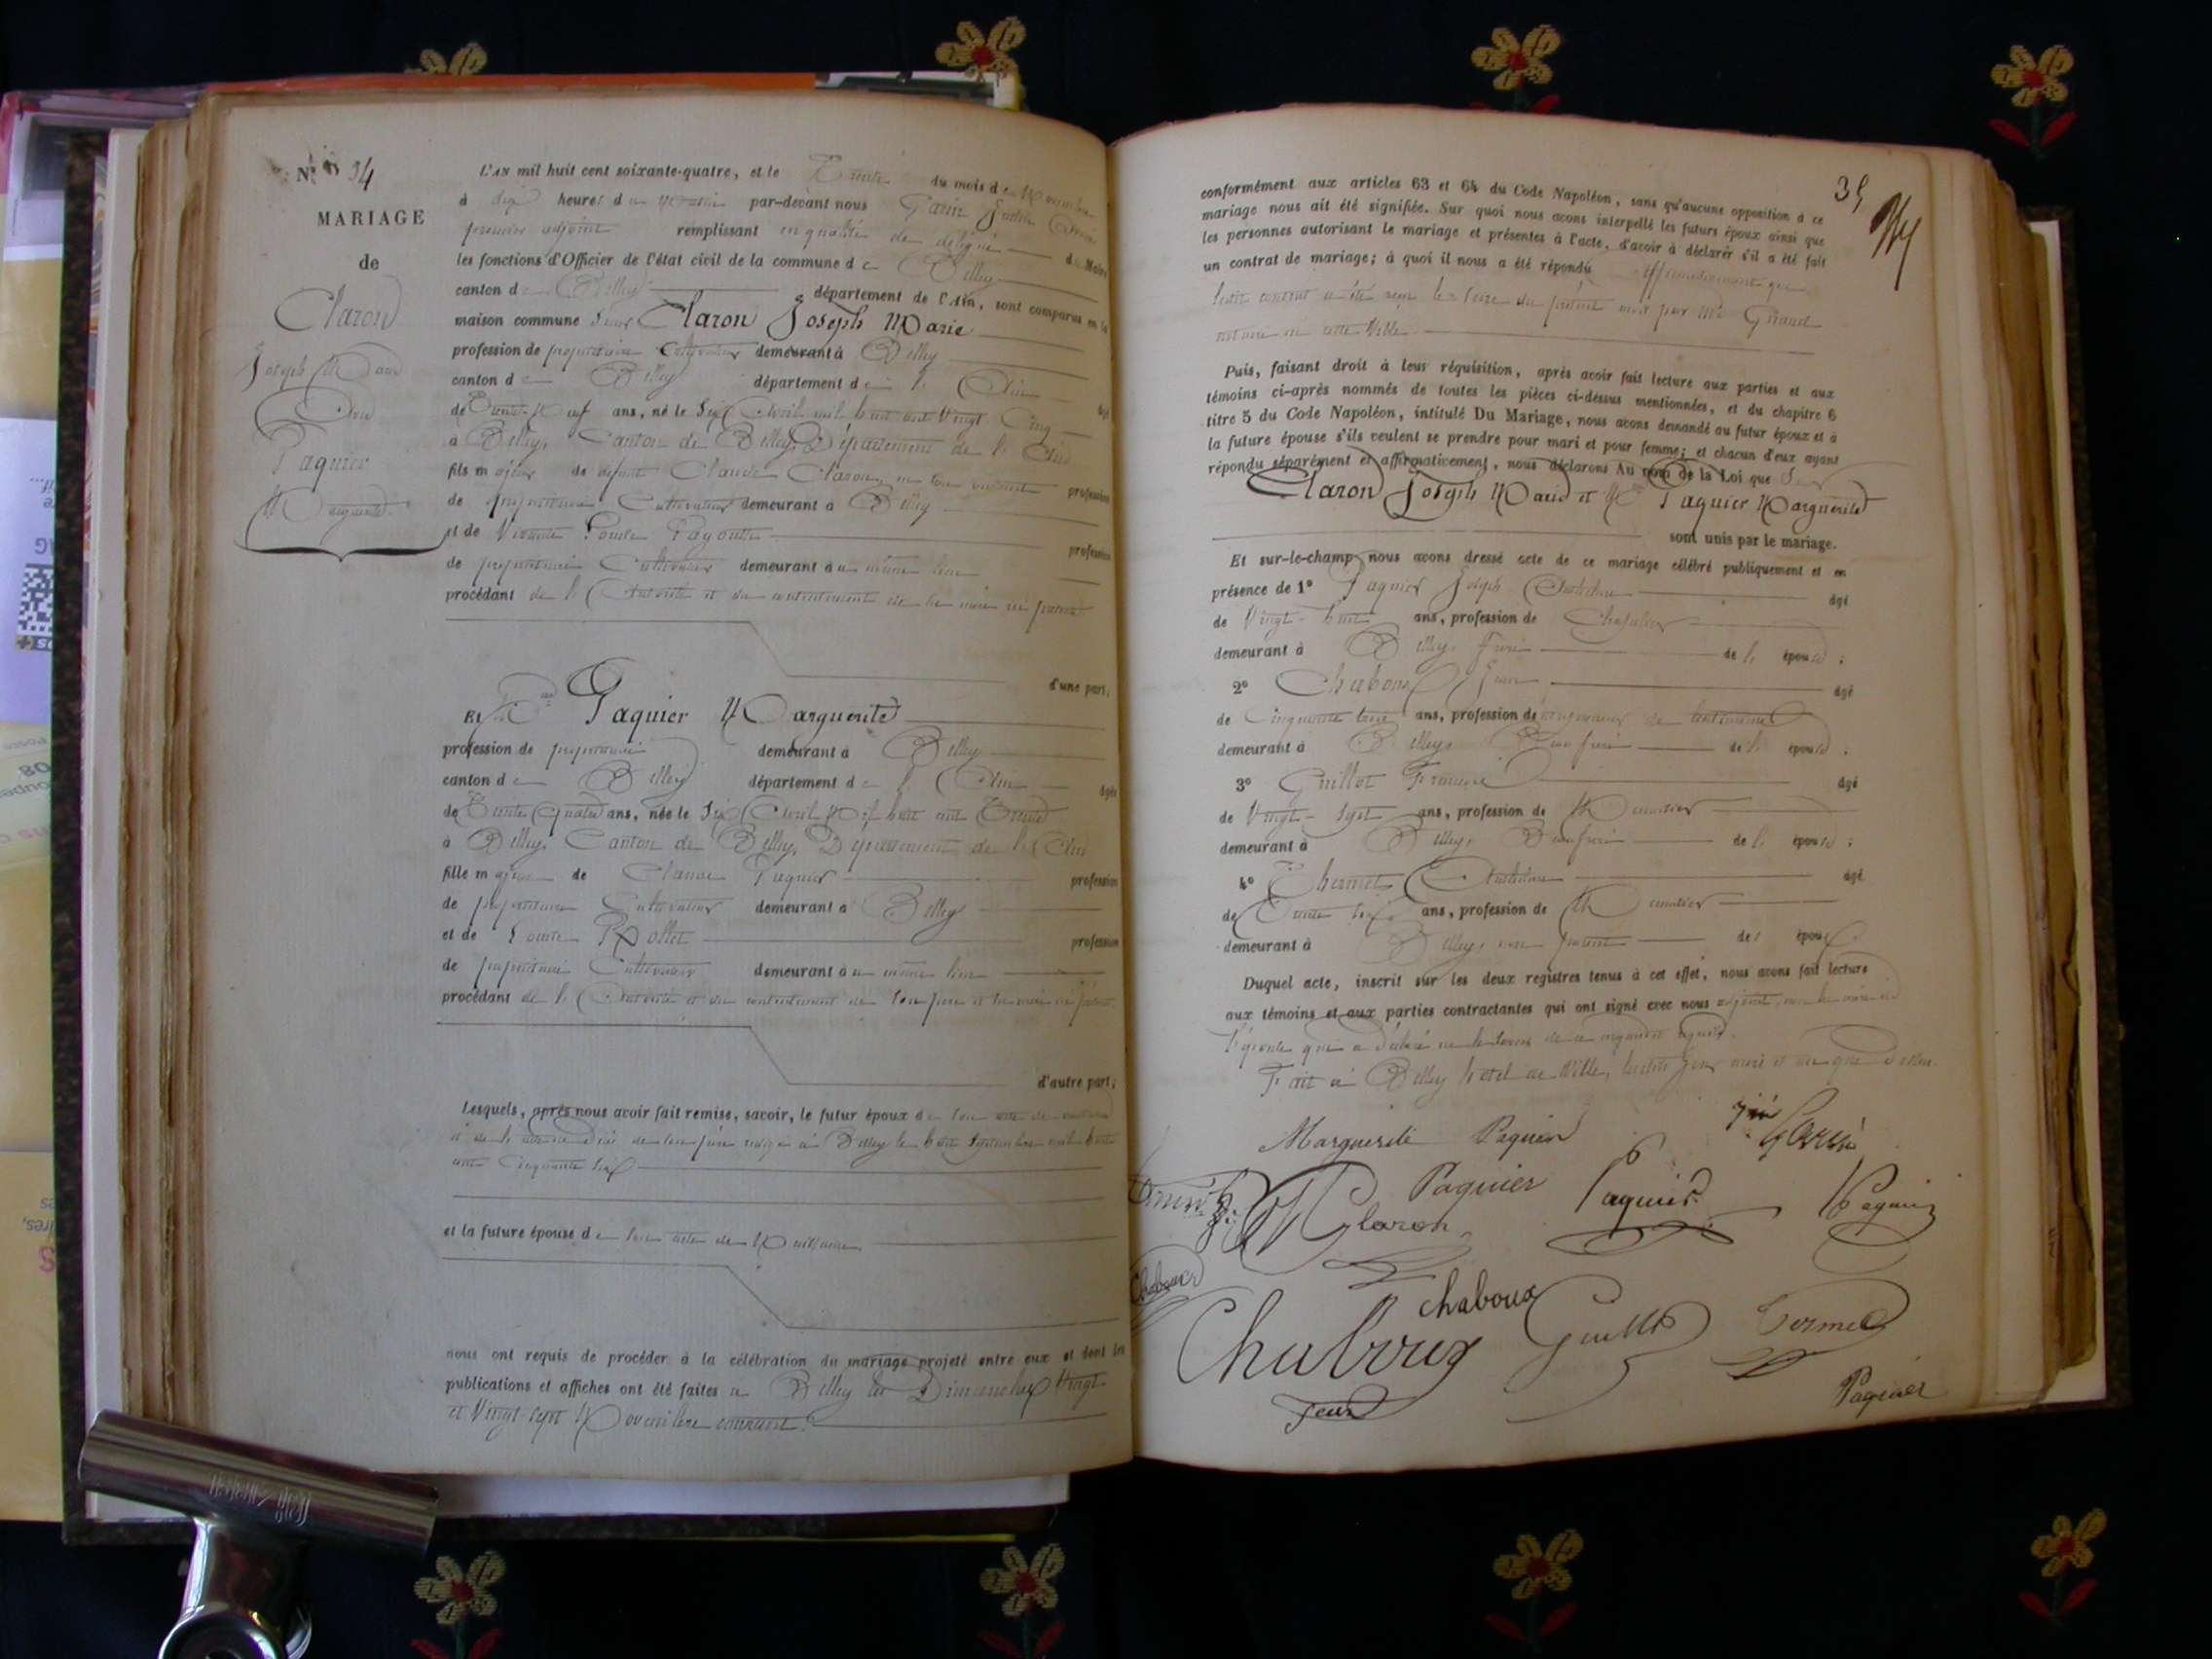 N° 34
MARIAGE
de
Claron
Joseph Marie
Paquier
Marguerite
L'AN mil huit cent soixante-quatre, et le Trente du mois de Novembre
à dix heures du Matin par-devant nous Garin
premier adjoint remplissant en qualité de délégué du Maire
les fonctions d'Officier de l'état civil de la commune de Belley
canton de Belley département de l'Ain, sont comparus en la
maison commune Claron Joseph Marie
profession de propriétaire Cultivateur demeurant à Belley
canton de Belley département de l'Ain âgé
de Trente-Neuf ans, né le Six Avril mil huit cent Vingt Cinq
à Belley, Canton de Belley, Département de l'Ain
fils majeur de défunt Claude Claron, en son vivant profession
de propriétaire Cultivateur demeurant à Belley
et de Vivante Louise profession
de propriétaire Cultivateur demeurant au même lieu
procédant de l'Autorité et du consentement de sa mère ici présente
d'une part;
Et Paquier Marguerite
profession de propriétaire demeurant à Belley
canton de Belley département de l'Ain âgée
de Trente Quatre ans, née le Six Avril Mil huit cent Trente
à Belley, Canton de Belley, Département de l'Ain
fille majeure de Claude Paquier profession
de propriétaire Cultivateur demeurant à Belley
et de Louise Rollet profession
de propriétaire Cultivateur demeurant au même lieu
procédant de l'Autorité et du consentement de son père et sa mère ici présents
d'autre part;
Lesquels, après nous avoir fait remise, savoir, le futur époux de son acte de naissance
et de l'acte de décès de son père rédigé à Belley le huit Septembre mil huit
cent Cinquante Six
et la future épouse de son acte de Naissance
nous ont requis de procéder à la célébration du mariage projeté entre eux et dont les
publications et affiches ont été faites à Belley les Dimanches Vingt
et Vingt-sept Novembre courant.
35
conformément aux articles 63 et 64 du Code Napoléon, sans qu'aucune opposition à ce
mariage nous ait été signifiée. Sur quoi nous avons interpellé les futurs époux ainsi que
les personnes autorisant le mariage et présentes à l'acte, d'avoir à déclarer s'il a été fait
un contrat de mariage; à quoi il nous a été répondu affirmativement que
ledit contrat a été reçu le seize du présent mois par Me Giraud
notaire en cette Ville.
Puis, faisant droit à leur réquisition, après avoir fait lecture aux parties et aux
témoins ci-après nommés de toutes les pièces ci-dessus mentionnées, et du chapitre 6
titre 5 du Code Napoléon, intitulé Du Mariage, nous avons demandé au futur époux et à
la future épouse s'ils veulent se prendre pour mari et pour femme; et chacun d'eux ayant
répondu séparément et affirmativement, nous déclarons Au nom de la Loi que
Claron Joseph Marie et Paquier Marguerite
sont unis par le mariage.
Et sur-le-champ nous avons dressé acte de ce mariage célébré publiquement et en
présence de 1° Paquier Joseph Anthelme âgé
de Vingt-huit ans, profession de Chapelier
demeurant à Belley, Frère de l'épouse;
2° Chaboux Jean âgé
de Cinquante trois ans, profession de
demeurant à Belley, Beau frère de l'épouse;
3° Guillot François âgé
de Vingt-Sept ans, profession de Menuisier
demeurant à Belley, Beau frère de l'épouse;
4° Thermet Anthelme âgé
de Trente Six ans, profession de Menuisier
demeurant à Belley, non parent des époux.
Duquel acte, inscrit sur les deux registres tenus à cet effet, nous avons fait lecture
aux témoins et aux parties contractantes qui ont signé avec nous adjoint, non la mère de
l'épouse qui a déclaré ne le savoir de ce requise.
Fait à Belley hôtel de Ville, lesdits jour mois et an que dessus.
Marguerite Paquier
Garin
Claron
Paquier
Paquier
Paquier
Chaboux
chaboux
Chaboux
Jean
Guillot
Termet
Paquier